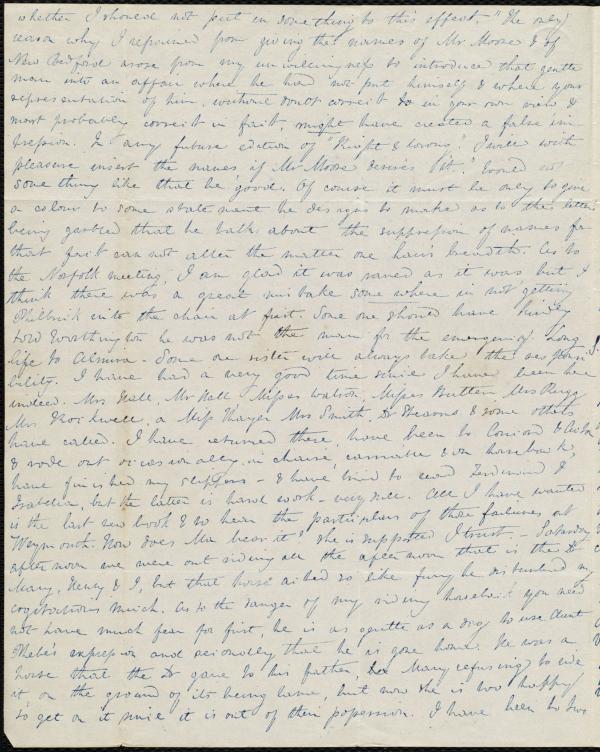 whether I should not put in something to this effect - "The only
reason why I refrained from giving the names of Mr Moore & of
New Bedford arose from my unwillingness to introduce that gentle
man into an affair where he had not put himself & where your
representation of him, without doubt correct to in your own view &
most probably correct in fact, might have created a false im
pression. In any future edition of "Right & Wrong" I will with
pleasure insert the names if Mr Moore desires it." Would not
something like that be good. Of course it must be only to give
a colour to some statement he designs to make as to the letters
being garbled that he talks about the suppression of names for
that fact can not alter the matter one hair's breadth. As to
the Norfolk meeting, I am glad it was saved as it was but I
think there was a great mistake some where in not getting
Philbrick into the chair at first. Some one should have kindly
told Worthington he was not the man for the emergency. Long
life to Almira - Some one sister will always take the responsi
bility. I have had a very good time since I have been here
indeed. Mrs Hall, Mr Hall Misses Watson, Misses Button, Mrs Rugg
Mrs Rockwell, a Miss Thayer Mrs Smith, Dr Stearns & some others
have called. I have returned these, have been to Concord & Acton
& rode out occasionally, in chaise, carriage & on horseback,
have finished my slippers - & have tried to read Ferdinand &
Isabella, but the latter is hard work - very dull. All I have wanted
is the last new book & to hear the particulars of those failures at
Weymouth. How does Ma bear it? she is supported I trust. - Saturday
afternoon we were out riding all the afternoon that is the Dr
Mary, Henry & I, but that horse acted so like fury he disturbed my
cogitations much. As to the danger of my riding horseback you need
not have much fear for first, he is as gentle as a dog to use Aunt
Phebe's expression and secondly that he is gone home. He was a
horse that the Dr gave to his father, Mary refusing to ride
it, on the ground of its being lame, but now she is too happy
to get on it since it is out of their possession. I have been to two